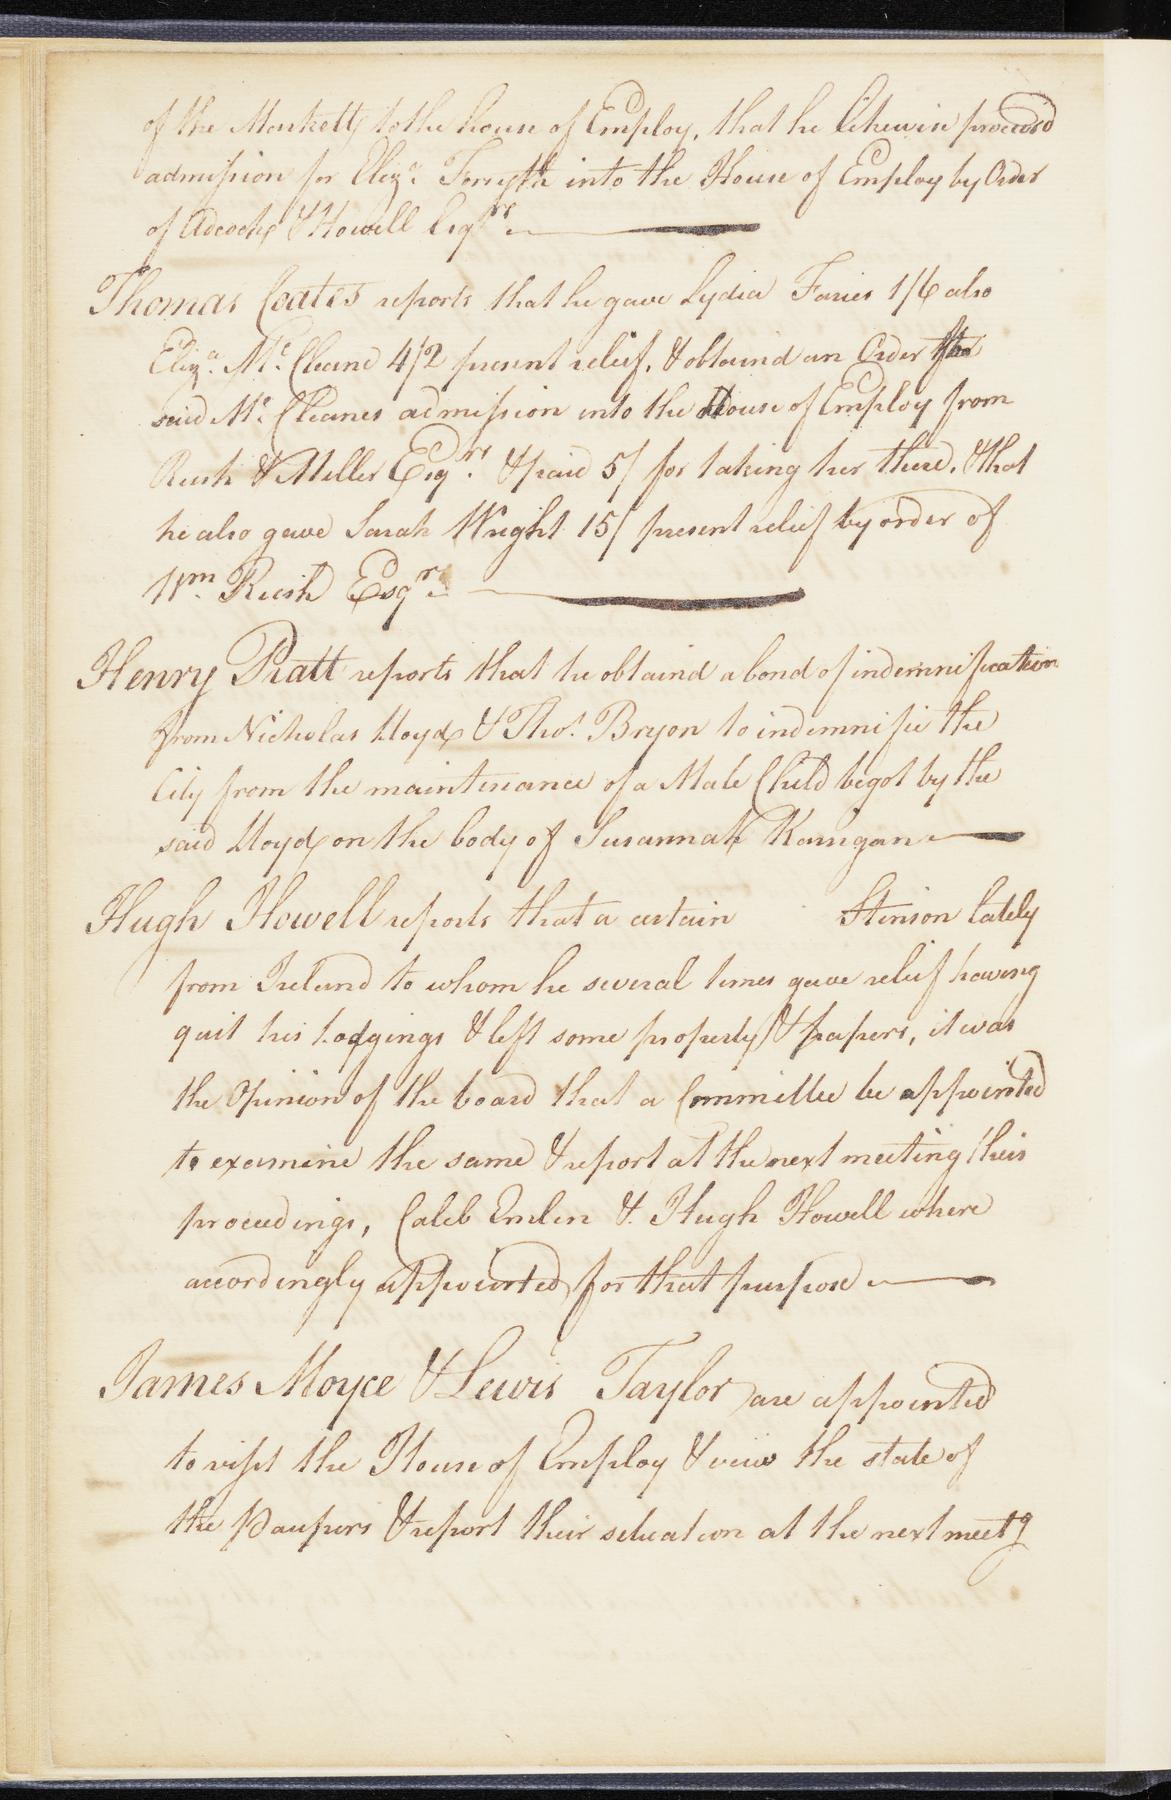 of the Markett, to the house of Employ, that he likewise procur'd
admission for Eliza. Forsyth into the House of Employ by Order
of Adcock & Howell Esqrs.
Thomas Coates reports that he gave Lydia Faries 1/6 also
Eliza. Mc. Cleane 4/2 present relief, & obtaind an Order for
said Mc. Cleanes admission into the House of Employ from
Rush & Miller Esqrs. & paid 5/ for taking her there, & that
he also gave Sarah Wright 15/ present relief by order of
Wm. Rush Esqr.
Henry Pratt reports that he obtaind a bond of indemnification
from Nicholas Lloyd & Thos. Bryon to indemnifie the
City from the maintenance of a Male Child begot by the
said Lloyd on the body of Susannah
Hugh Howell reports that a certain Stinson lately
from Ireland to whom he several times gave relief having
quit his Lodgings & left some property & papers, it was
the Opinion of the board that a Committee be appointed
to examine the same & report at the next meeting their
proceedings, Caleb Emlen & Hugh Howell where
accordingly appointed for that purpose
James Moyce & Lewis Taylor are appointed
to visit the House of Employ & view the state of
the Paupers & report their situation at the next meetg